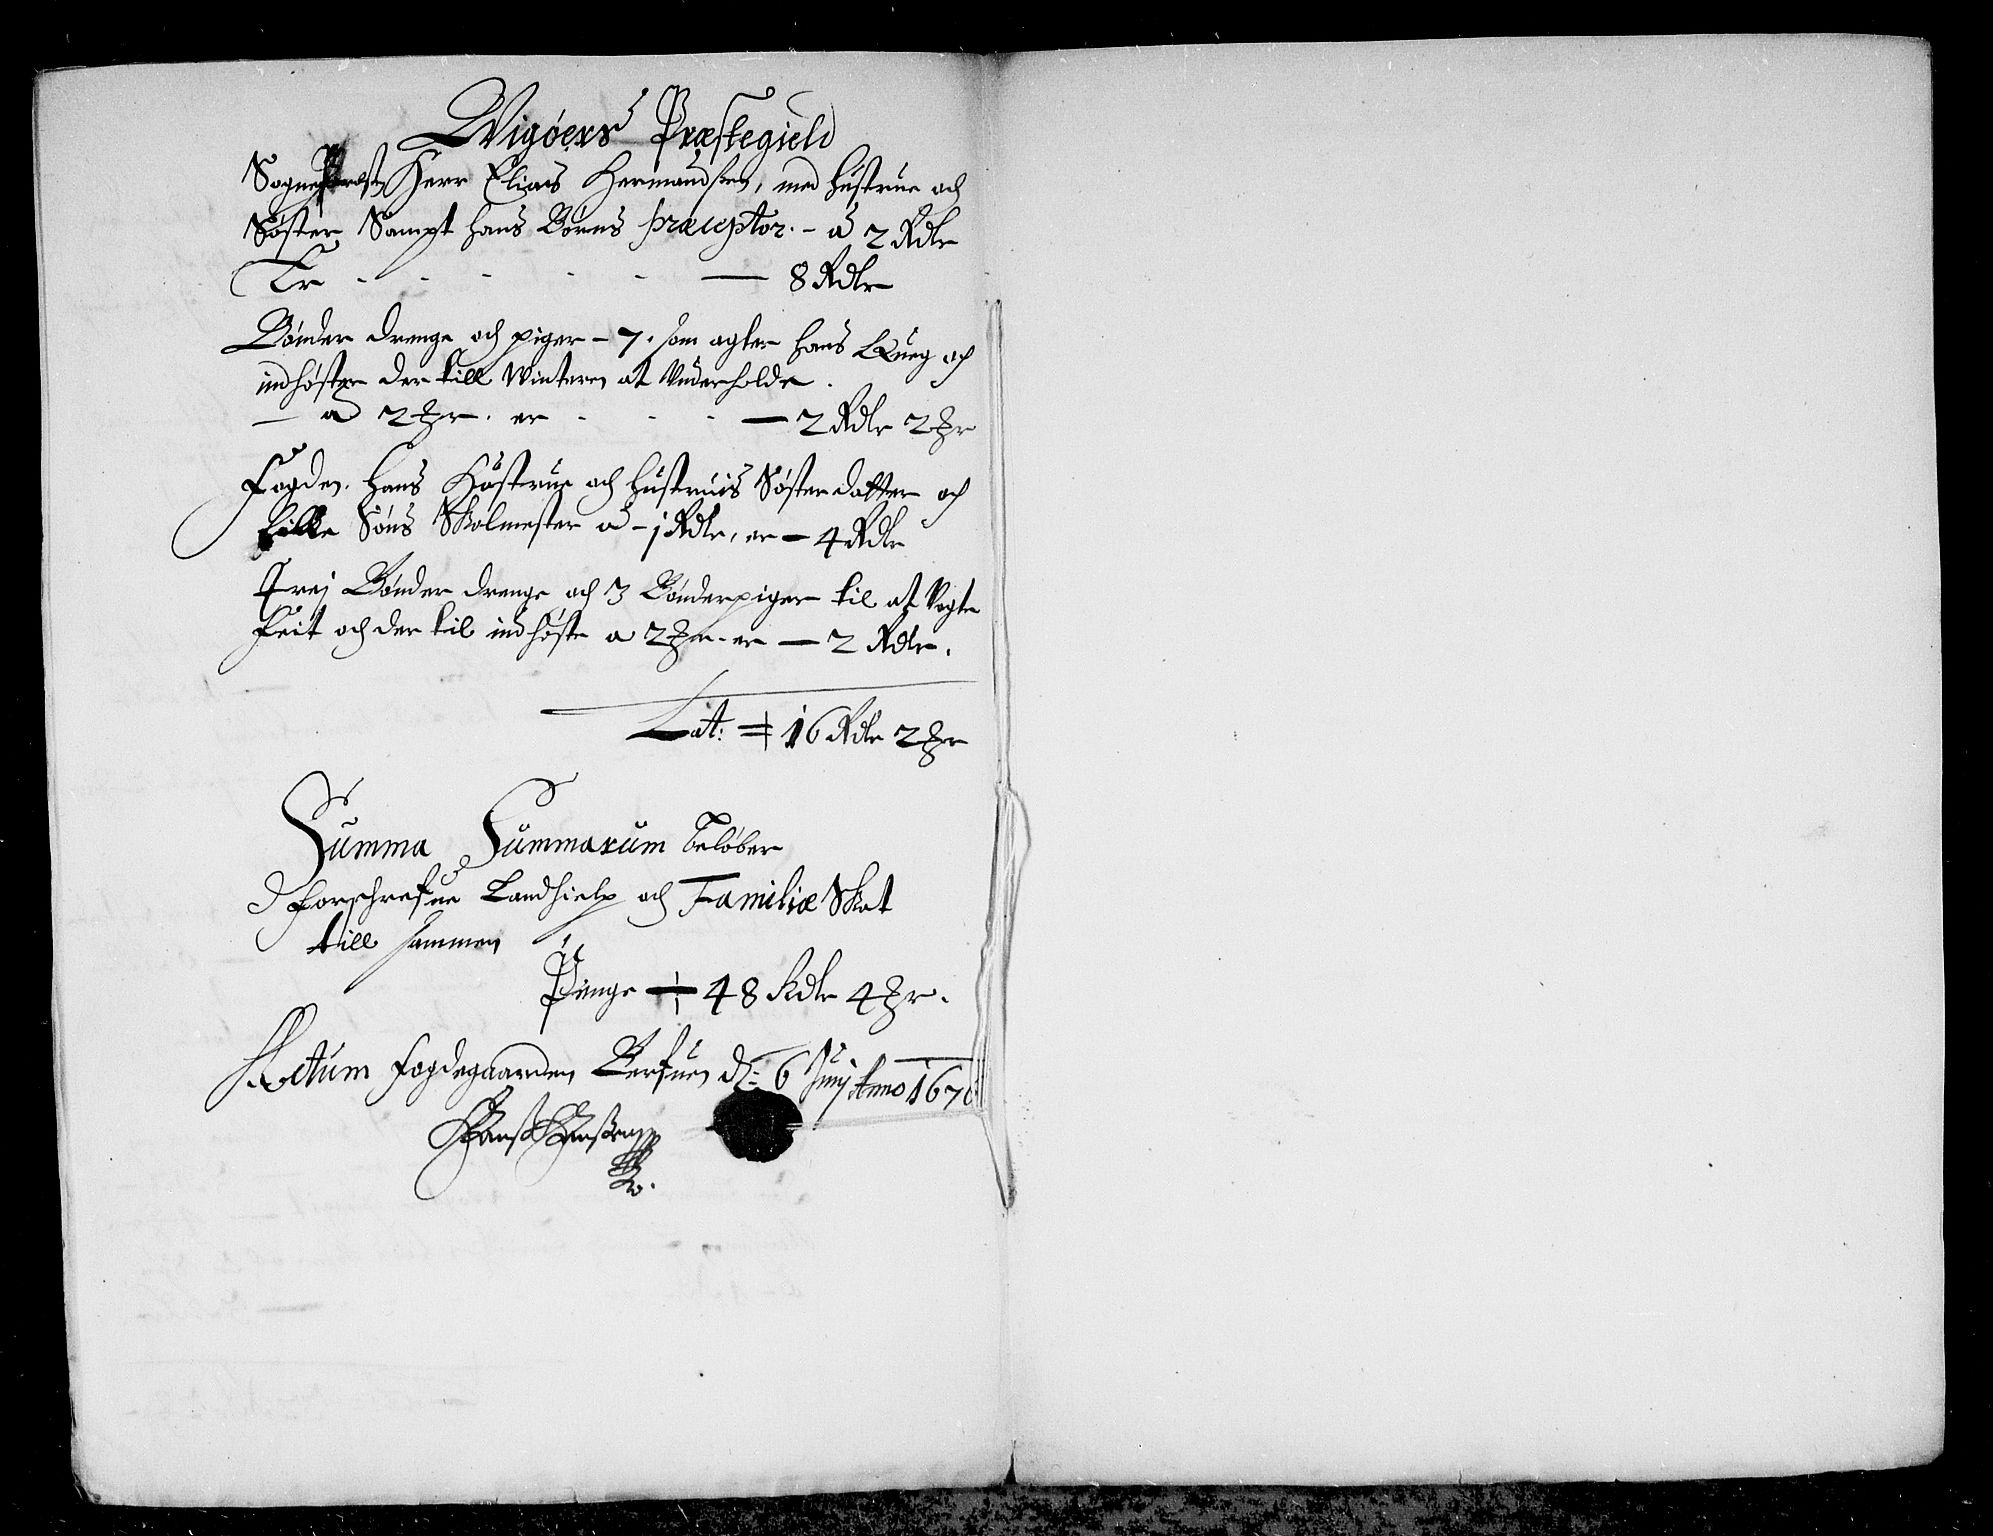 Wigøers Præstegield
Sognepresten Herr Elias Hermandsen, med hustrue och
Søster Sampt hans Børns præceptor. - a 2 Rdlr
Er - - - - - — 8 Rdlr
Bønder drenge och piger - 7. som agter hans Queg och
indhøster der till Winteren at Underholde.
— a 2 Hr. er - - - — 2 Rdlr 2 Hr
Fogden. Hans Hustrue och hustruis Søster datter och
lille Søns Skolmester a - 1 Rdlr, er — 4 Rdlr
Trej Bønder drenge och 3 Bønderpiger til at Vogte
Feit och der til indhøste a 2 Hr. er — 2 Rdlr.
Lat: = 16 Rdlr 2 Hr
Summa Summarum beløber
forschrefne Landhielp och Familiæ Skat
till sammen
Penge ÷ 48 Rdlr 4 Hr.
Actum Fogdegaarden d: 6 Junij Anno 1670